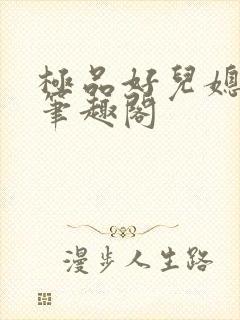 極品好兒媳
筆趣閣
漫步人生路